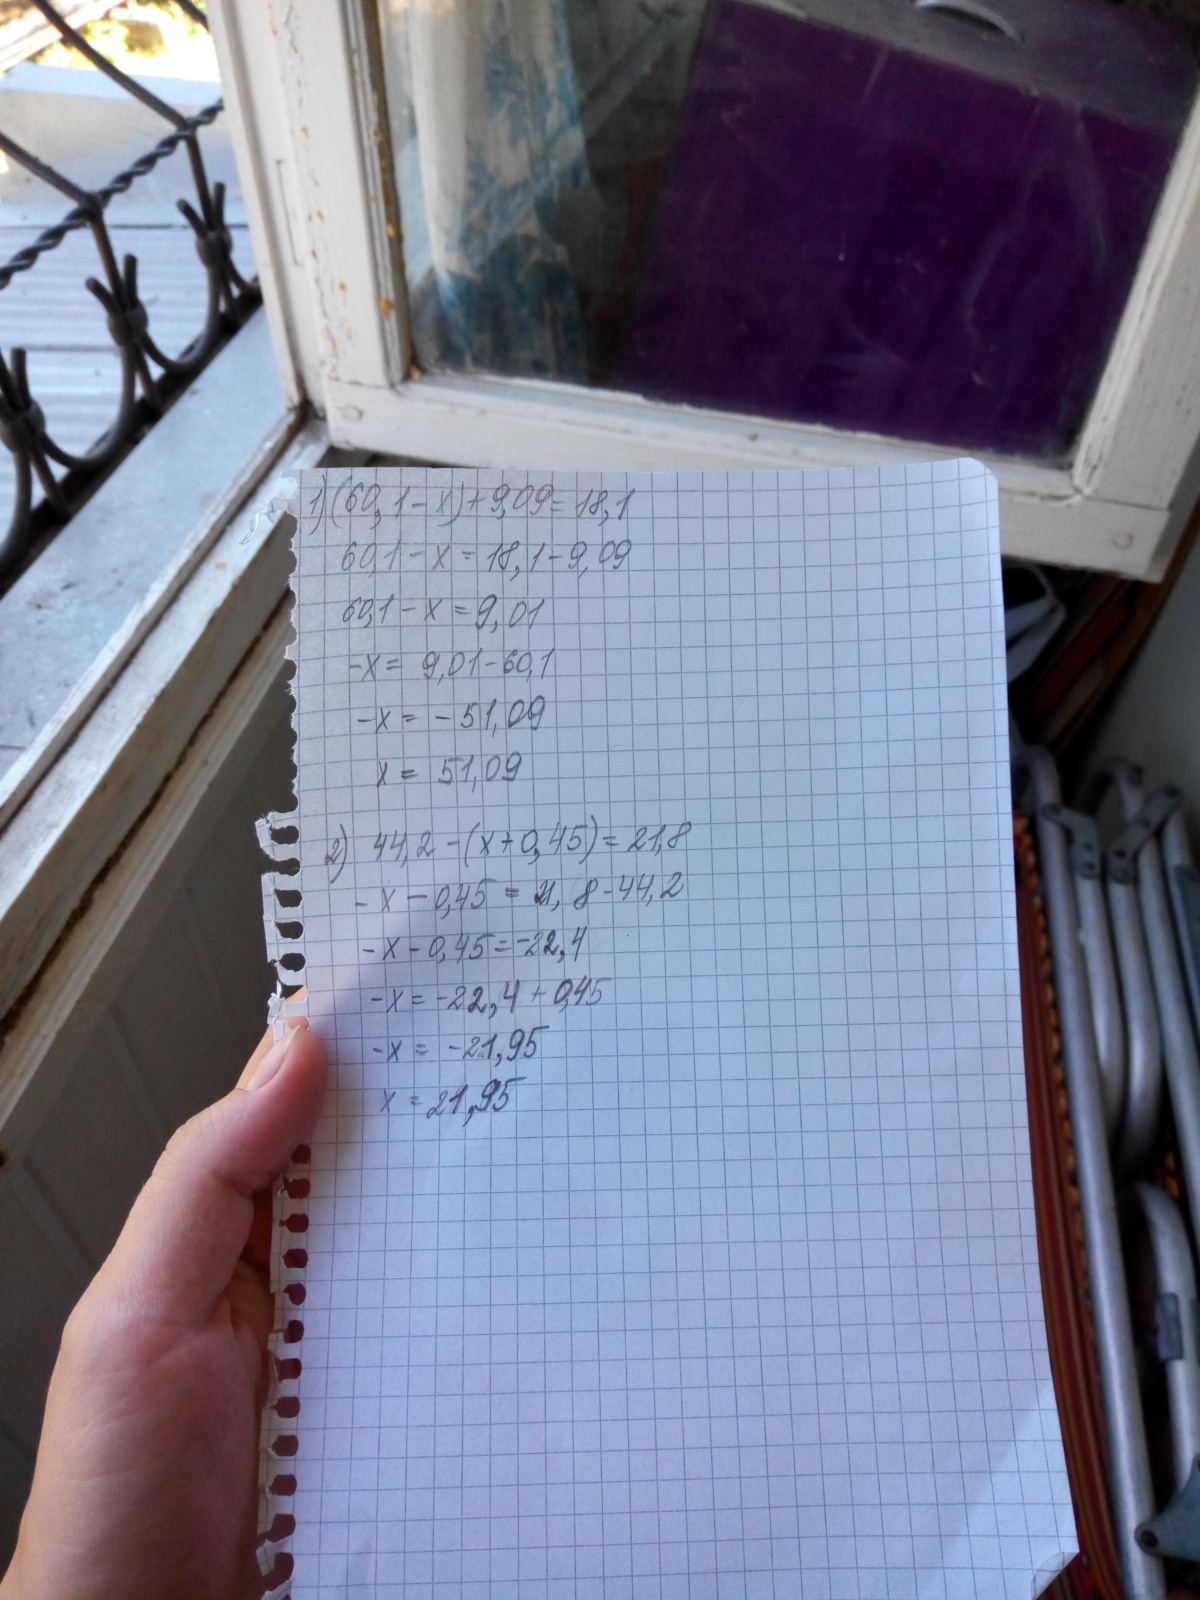 1) (60,1 - x) + 9,09 = 18,1
60,1 - x = 18,1 - 9,09
60,1 - x = 9,01
-x = 9,01 - 60,1
-x = -51,09
x = 51,09
2) 44,2 - (x + 0,45) = 21,8
-x - 0,45 = 21,8 - 44,2
-x - 0,45 = -22,4
-x = -22,4 + 0,45
-x = -21,95
x = 21,95